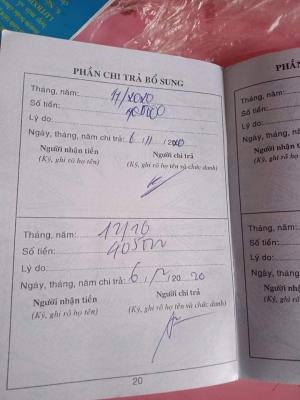 PHẦN CHI TRẢ BỔ SUNG
Tháng, năm: 11/2020
Số tiền: 405000
Lý do:
Ngày, tháng, năm chi trả: 6 / 11 / 2020
Người nhận tiền Người chi trả
(Ký, ghi rõ họ tên) (Ký, ghi rõ họ tên và chức danh)
Tháng, năm: 12/20
Số tiền: 405000
Lý do:
Ngày, tháng, năm chi trả: 6 / 12 / 20 20
Người nhận tiền Người chi trả
(Ký, ghi rõ họ tên) (Ký, ghi rõ họ tên và chức danh)
20
Tháng, năm
Số tiền:
Lý do:
Ngày, thán
Người n
(Ký, ghi
Tháng, năm
Số tiền:
Lý do:
Ngày, thá
Người
(Ký, gh